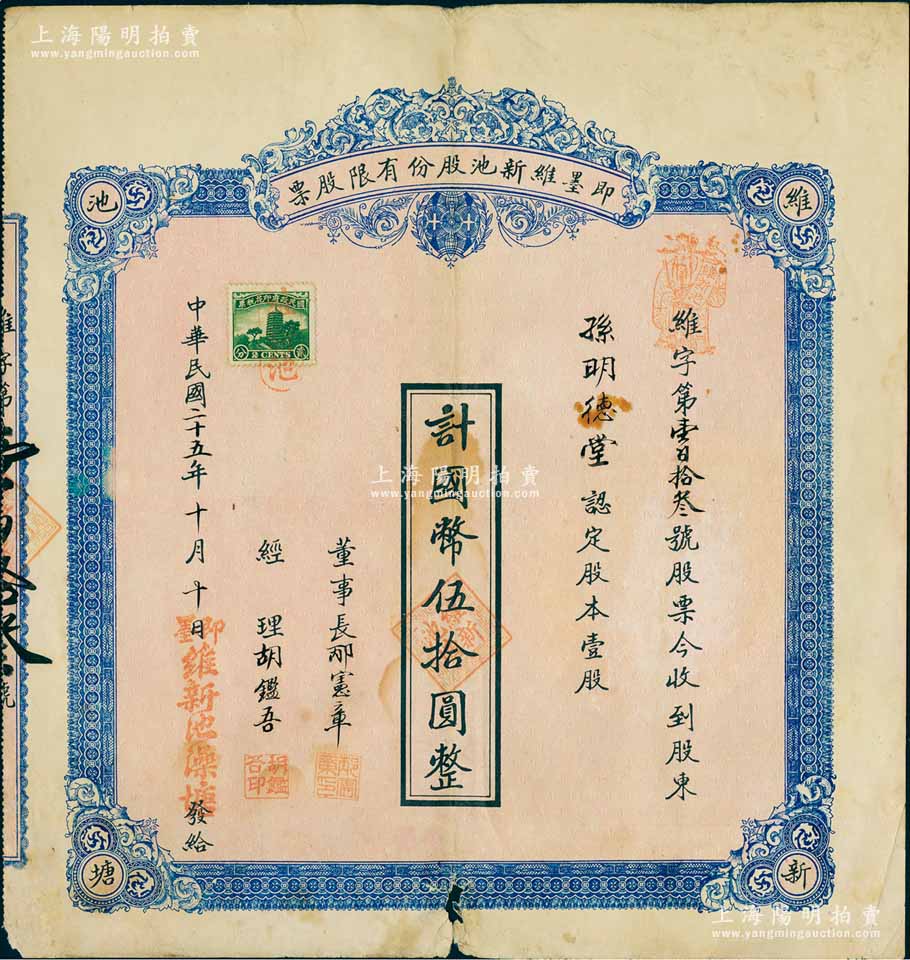 上海陽明拍賣
www.yangmingauction.com
即墨維新池股份有限股票
維
新
池
塘
維字第壹百拾叁號股票今收到股東
孫明德堂 認定股本壹股
計國幣伍拾圓整
董事長邴憲章
經理胡鑑吾
胡鑑吾印
中華民國二十五年十月十日
即墨
維新池澡塘
發給
國民政府印花稅票
分 2 CENTS 貳
池
上海陽明拍賣
www.yangmingauction.com
維字第
號
上海陽明拍賣
www.yangmingauction.com